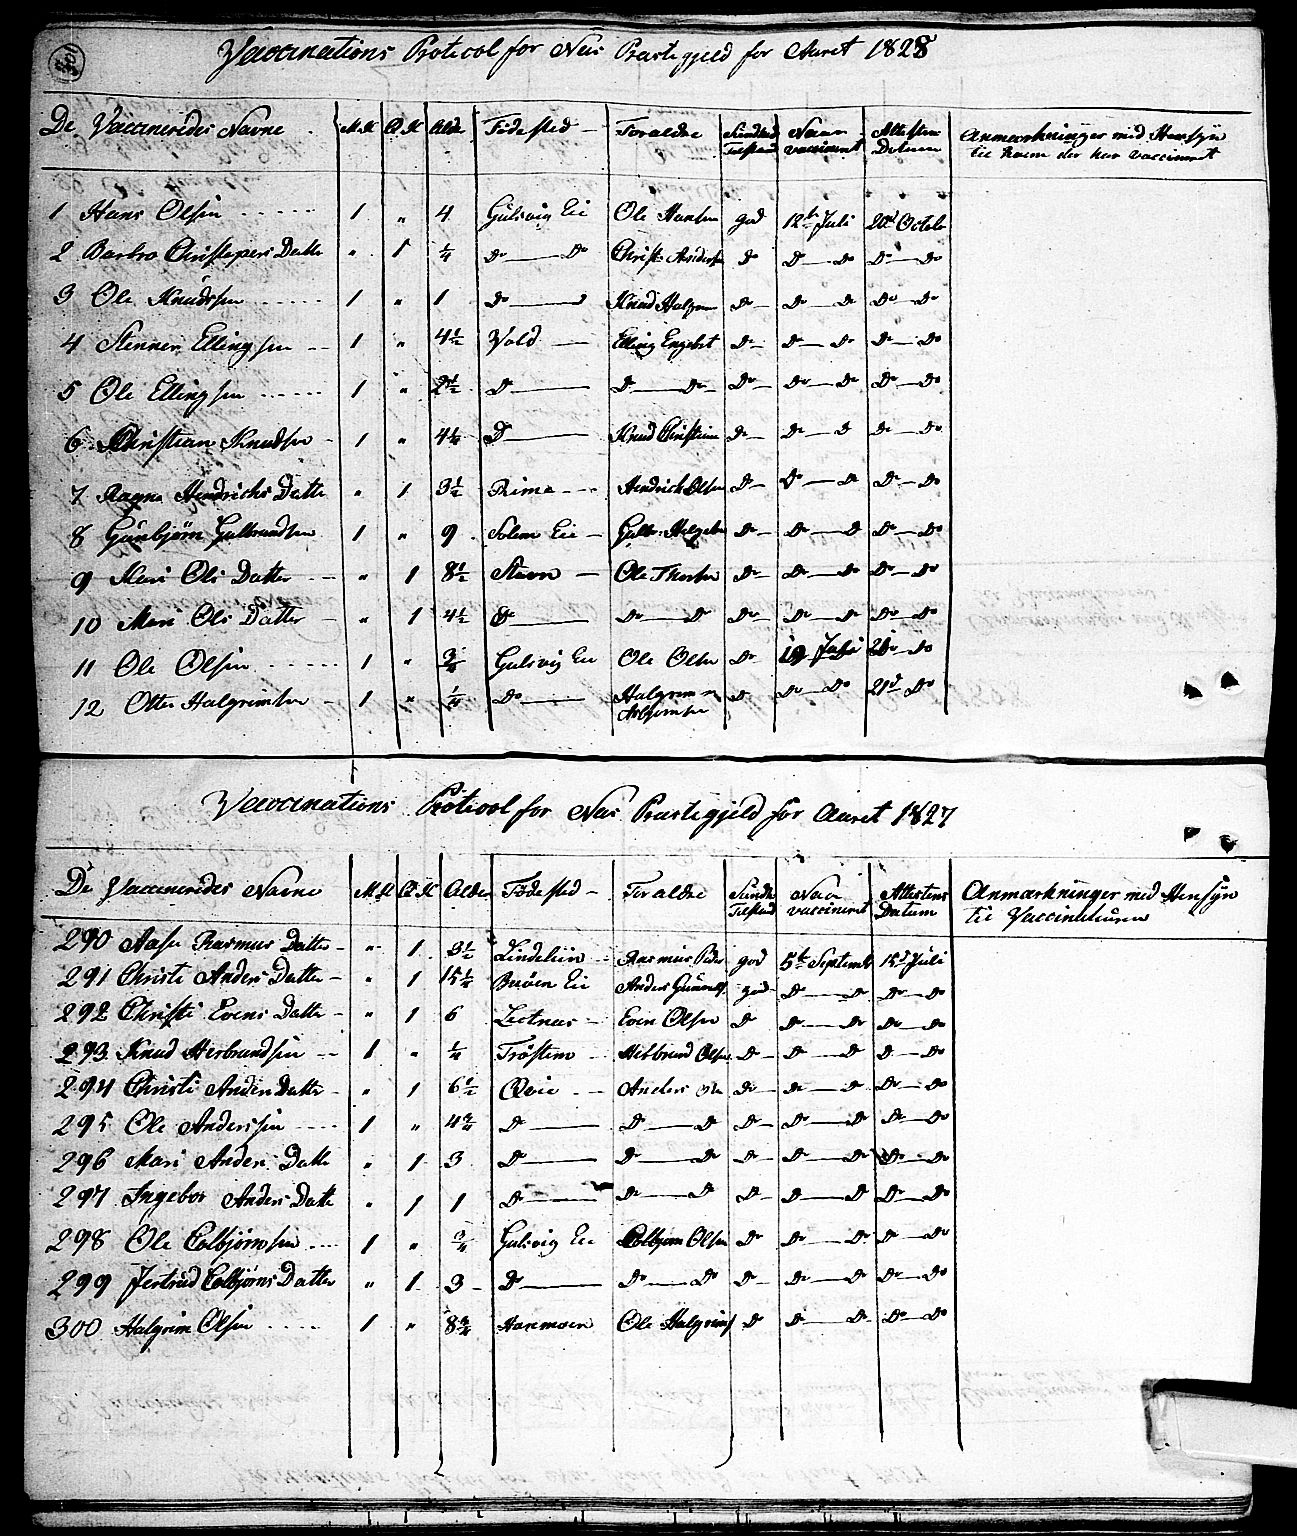 Vaccinations Protocol for Næs Præstegjeld for Aaret 1828
De Vaccineredes Navne M.K Q.K Alder Födested Forældre Sundheds Tilstand Naar vaccineret Attestens Datum Anmærkninger med Hensÿn til hvem der har vaccineret
1 Hans Olsen 1 " 4 Gulsvig Eie Ole Hansen god 12te Juli 20de Octobr
2 Barbro Christophers Datter " 1 ¼ do do Christ. Anders. do do do do do
3 Ole Knudsen 1 " 1 do Knud Halgr. do do do do do
4 Stenner Ellingsen 1 " 4½ Vold Elling Engebret do do do do do
5 Ole Ellingsen 1 " 2½ do do do do do do do do
6 Christian Knudsen 1 " 4½ do Knud Christian do do do do do
7 Ragne Hendrichs Datter " 1 3½ Rime Hendrich Olsen do do do do do
8 Gunbjörn Gulbrandsen 1 " 9 Solem Eie Gulbr. Helgesen do do do do do
9 Kari Ols Datter " 1 8½ Stavn Ole Thorsen do do do do do
10 Mari Ols Datter " 1 4½ do do do do do do do do
11 Ole Olsen 1 " ¾ Gulsvig Eie Ole Olsen do Juli do
12 Otter Halgrimsen 1 " ¼ do Halgrim do do do 21de do
Vaccinations Protocol for Næs Præstegjeld for Aaret 1827
De Vaccineredes Navne M.K Q.K Alder Födested Forældre Sundheds Tilstand Naar vaccineret Attestens Datum Anmærkninger med Hensÿn til Vaccinateuren
290 Aase Rasmus Datter " 1 3½ Lindelien Rasmus Peder god 5te Septembr 15de Juli
291 Christi Anders Datter " 1 15¼ Bröen Eie Anders Gunnels god do do do do
292 Christi Evens Datter " 1 6 Liotnæs Even Olsen do do do do do
293 Knud Herbrandsen 1 " ¼ Tröstem Helbrand Olsen do do do do do
294 Christi Anders Datter " 1 6½ Qvie Anders Ole do do do do do
295 Ole Anderssen 1 " 4¾ do do do do do do do do
296 Mari Anders Datter " 1 3 do do do do do do do do
297 Ingebor Anders Datte " 1 1 do do do do do do do do
298 Ole Colbjörnsen 1 " ¾ Gulsvig Eie Colbjörn Olsen do do do do do
299 Jertrud Colbjörns Datter " 1 3 do do do do do do do do
300 Halgrim Olsen 1 " 8¾ Hanmoen Ole Halgrims do do do do do